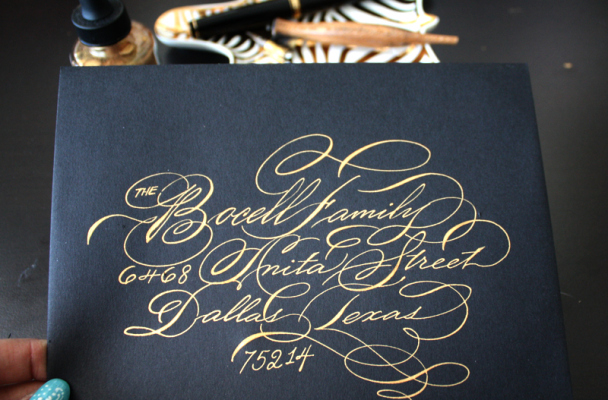 THE Bocell Family
6468 Anita Street
Dallas Texas
75214